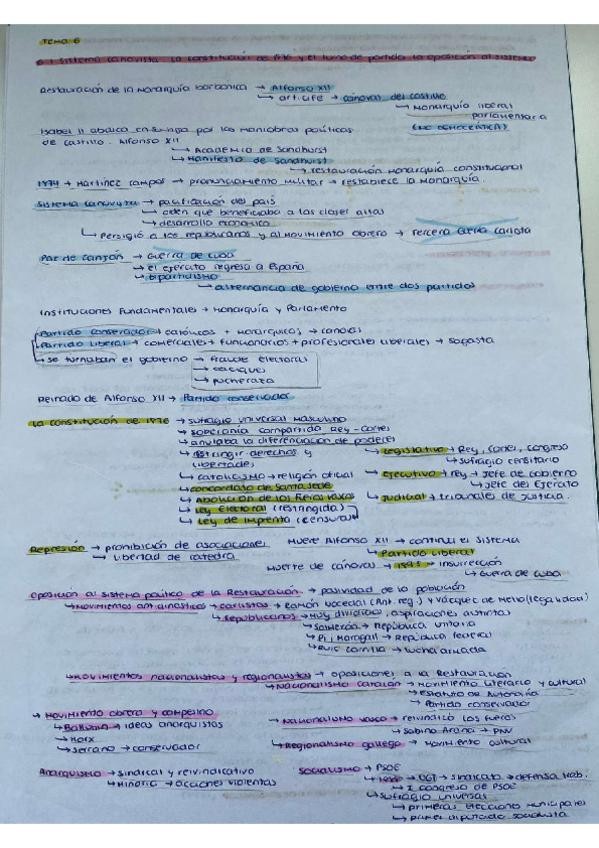 TEMA 6
6.1 Sistema canovista: La constitución de 1876 y el turno de partido. La oposición al sistema
Restauración de la Monarquía borbónica → Alfonso XII
↳ artífice → cánovas del castillo
↳ Monarquía liberal parlamentaria
(NO DEMOCRÁTICA)
Isabel II abdica en su hijo por las maniobras políticas
de Castillo. Alfonso XII
↳ Academia de Sandhurst
↳ Manifiesto de Sandhurst
↳ restauración monarquía constitucional
1874 → Martínez campos → pronunciamiento militar → restablece la monarquía.
Sistema canovista → pacificación del país
↳ orden que beneficiaba a las clases altas
↳ desarrollo económico
↳ Persigió a los republicanos y al movimiento obrero → tercera guerra carlista
Paz de Zanjón → Guerra de cuba
↳ el ejército regresa a España
↳ bipartidismo
↳ alternancia de gobierno entre dos partidos
Instituciones Fundamentales → Monarquía y Parlamento
Partido conservador → católicos + monárquicos → canovas
Partido Liberal → comerciales + funcionarios + profesionales liberales → sagasta
↳ se turnaban el gobierno → fraude electoral
↳ caciques
↳ pucherazo
Reinado de Alfonso XII → Partido conservador
La constitución de 1876 → sufragio universal masculino
↳ soberanía compartida Rey-cortes
↳ anulaba la diferenciación de poderes
↳ restringir derechos y libertades
↳ Legislativo → Rey, cortes, congreso
↳ sufragio censitario
↳ catolicismo → religión oficial
↳ ejecutivo → rey → jefe de gobierno
↳ jefe del Ejército
↳ concordato de Santa Sede
↳ abolición de los fueros vascos
↳ judicial → tribunales de justicia.
↳ Ley Electoral (restringida)
↳ Ley de Imprenta (censura)
Represión → prohibición de asociaciones
↳ libertad de cátedra
Muere Alfonso XII → continúa el sistema
↳ Partido liberal
Muerte de cánovas → insurrección
↳ Guerra de cuba
Oposición al sistema político de la Restauración → pasividad de la población
↳ Movimientos antidinásticos → carlistas → Ramón Nocedal (Ant. reg.) y Vázquez de Mella (legalidad)
↳ republicanos → muy divididos, aspiraciones distintas
↳ Salmerón → República unitaria
↳ Pi i Maragall → República federal
↳ Ruiz Zorrilla → lucha armada
↳ Movimientos nacionalistas y regionalistas → oposiciones a la Restauración
↳ Nacionalismo catalán → movimiento literario y cultural
↳ Estatuto de Autonomía
↳ Partido conservador
→ Movimiento obrero y campesino
↳ Bakunin → ideas anarquistas
↳ Marx
↳ Serrano → conservador
↳ Nacionalismo vasco → reivindicó los fueros
↳ Sabino Arana → PNV
↳ Regionalismo gallego → movimiento cultural
Anarquismo → sindical y reivindicativo
↳ Minoría → acciones violentas
Socialismo → PSOE
↳ 1888 → UGT → sindicato → defensa trab.
↳ I congreso de PSOE
↳ sufragio universal
↳ primeras elecciones municipales
↳ primer diputado socialista